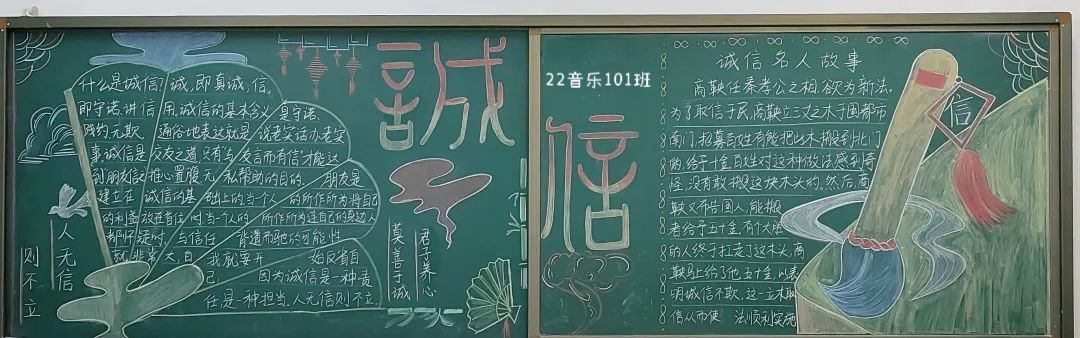 什么是诚信?诚,即真诚,信,
即守诺、讲信用。诚信的基本含义是守诺、
践约、无欺。通俗地表达就是说老实话、办老实
事。诚信是交友之道,只有与发言而有信才能达
到朋友信之推心置腹无私帮助的目的。朋友是
建立在诚信的基础上的当一个人的所作所为将自己
的利益放在首位时当一个人的所作所为连自己的身边人
都怀疑时,与信任背道而驰的可能性
就非常大,自我就要开始反省自
己,因为诚信是一种责
任是一种担当,人无信则不立
人无信
则不立
诚
君子养心
莫善于诚
信
22音乐101班
诚信名人故事
商鞅任秦孝公之相,欲为新法。
为了取信于民,商鞅立三丈之木于国都市
南门,招募百姓有能把此木搬到北门
的,给予十金。百姓对这种做法感到奇
怪,没有敢搬这块木头的。然后,商
鞅又布告国人,能搬
者给予五十金。有个大胆
的人终于扛走了这木头,商
鞅马上给了他五十金,以表
明诚信不欺。这一立木取
信从而使 法顺利实施
信